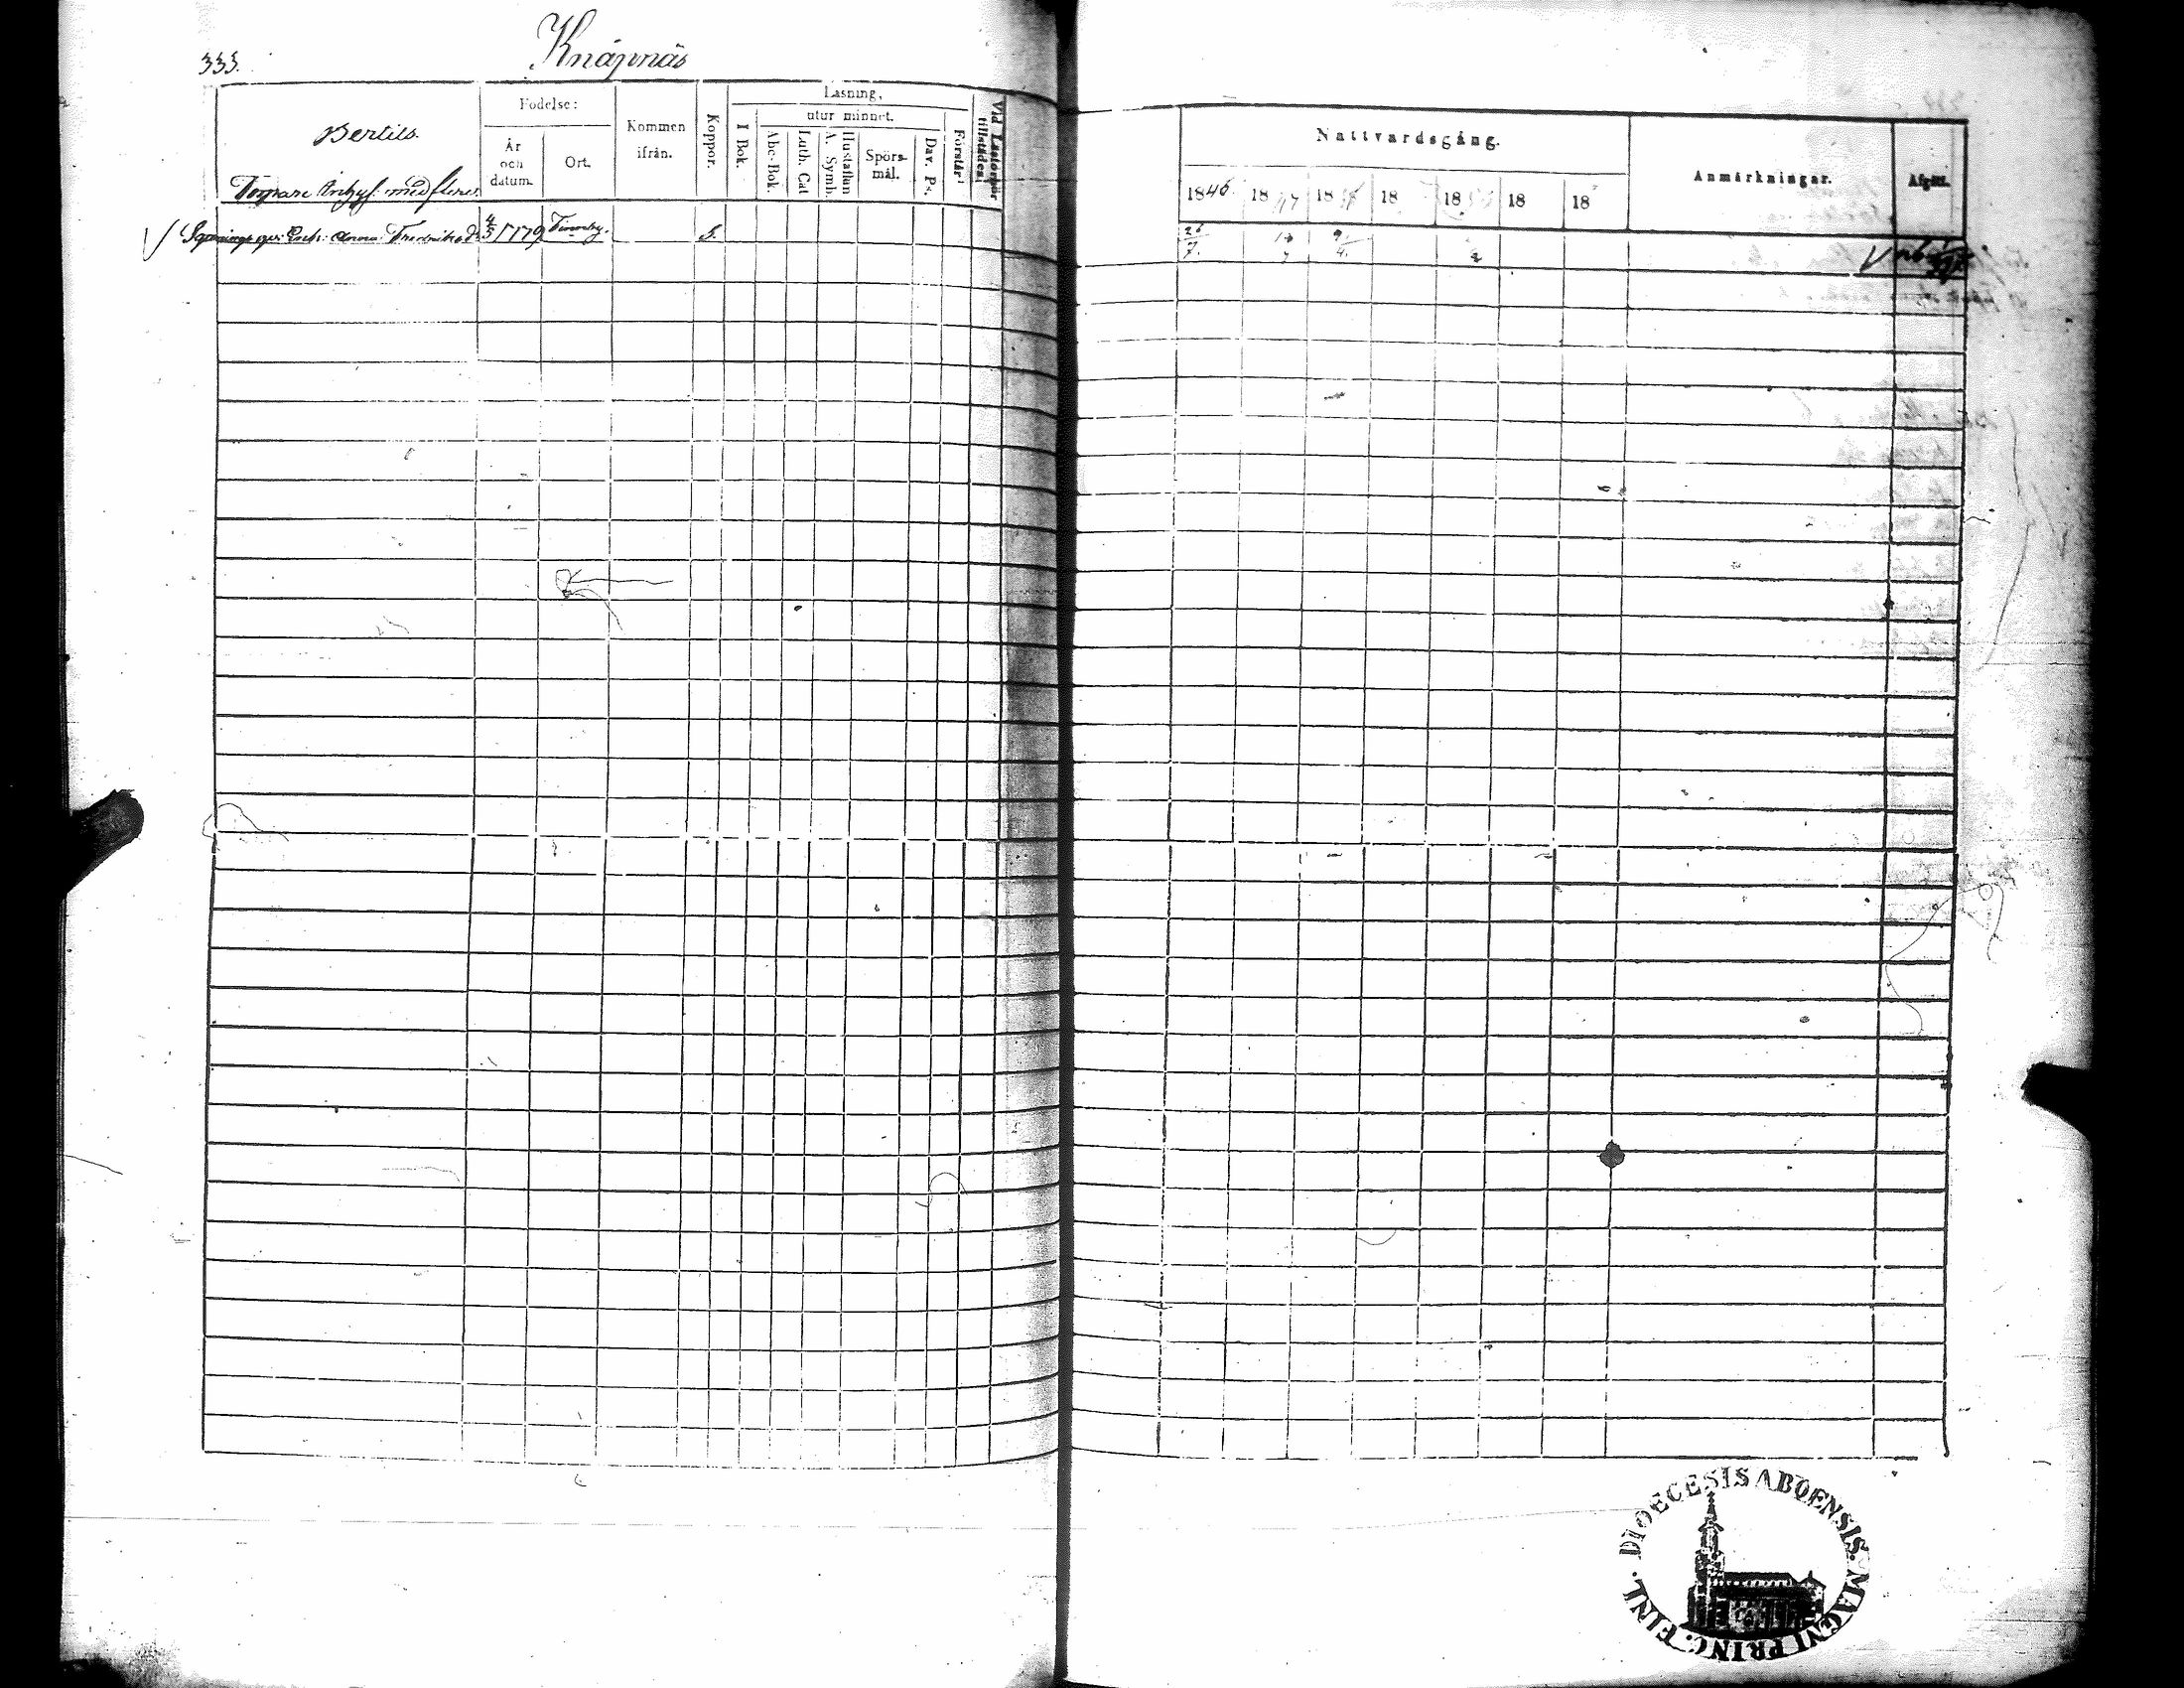 333.
Knäpnäs
Bertils.
Torpare Inhys: med flere
Födelse:
År och datum.
Ort.
Kommen ifrån.
Koppor.
Läsning.
I Bok.
utur minnet.
Abc-Bok.
Luth. Cat
Hustaflan A. Symb.
Spörs-mål.
Dav. Ps.
Förstår
Vid Läsförhör tillstädes.
Enk: Anna Fredriksdr 4/5 1779 Timmby. S.
Nattvardsgång.
1846. 1847 18 18 18 18 18
Anmärkningar.
Afgått.
26/7.
9/4.
DIOECESIS ABOENSIS. MAGNI PRINC. FINL.